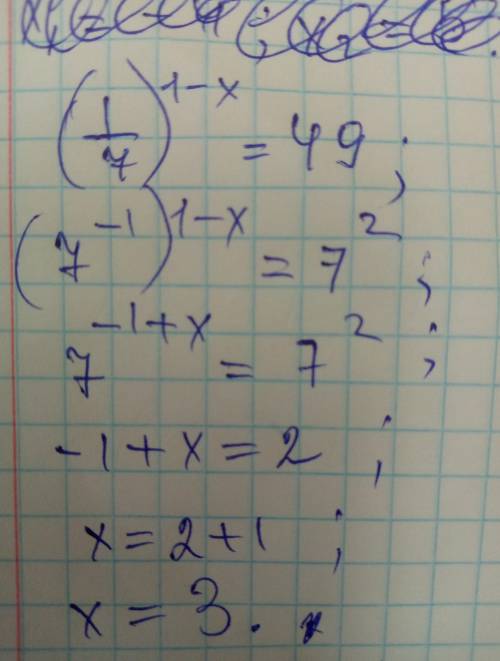 (1/7)^{1-x} = 49;
(7^{-1})^{1-x} = 7^{2};
7^{-1+x} = 7^{2};
-1+x=2;
x=2+1;
x=3.